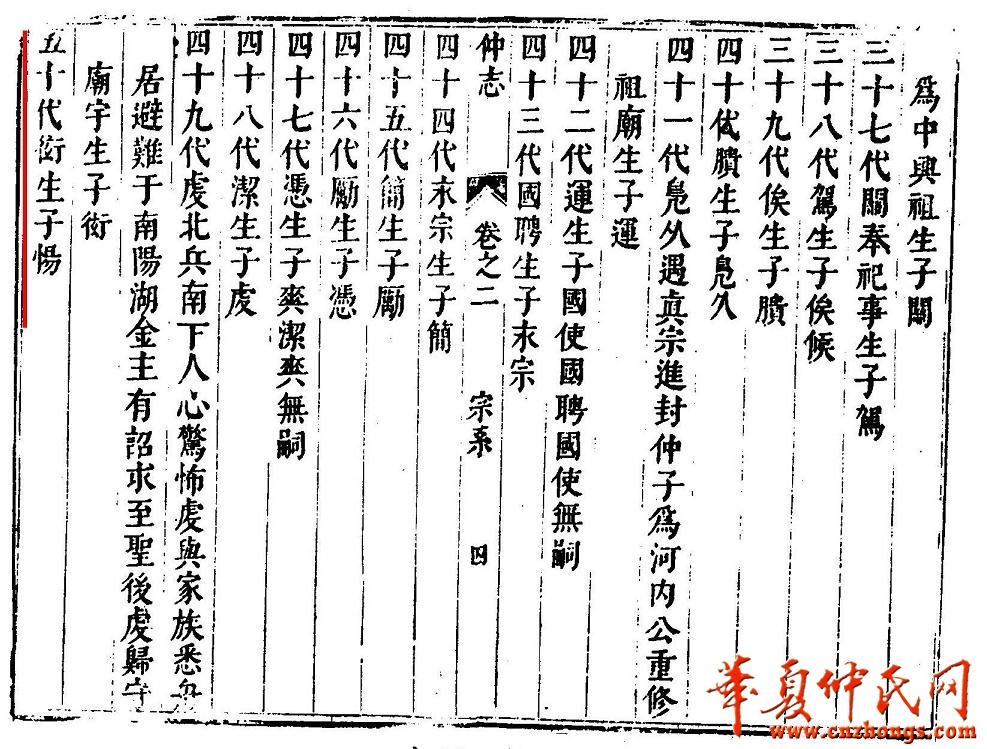 爲中興祖生子關
三十七代關奉祀事生子駕
三十八代駕生子俟候
三十九代俟生子膭
四十代膭生子凫久
四十一代凫久遇真宗進封仲子爲河内公重修
祖廟生子運
四十二代運生子國使國聘國使無嗣
四十三代國聘生子求宗
仲志 卷之二 宗系 四
四十四代求宗生子簡
四十五代簡生子勵
四十六代勵生子憑
四十七代憑生子爽潔爽無嗣
四十八代潔生子虔
四十九代虔北兵南下人心驚怖虔與家族悉
居避難于南陽湖金主有詔求至聖後虔歸守
廟宇生子衍
五十代衍生子惕
華夏仲氏网
www.cnzhongs.com